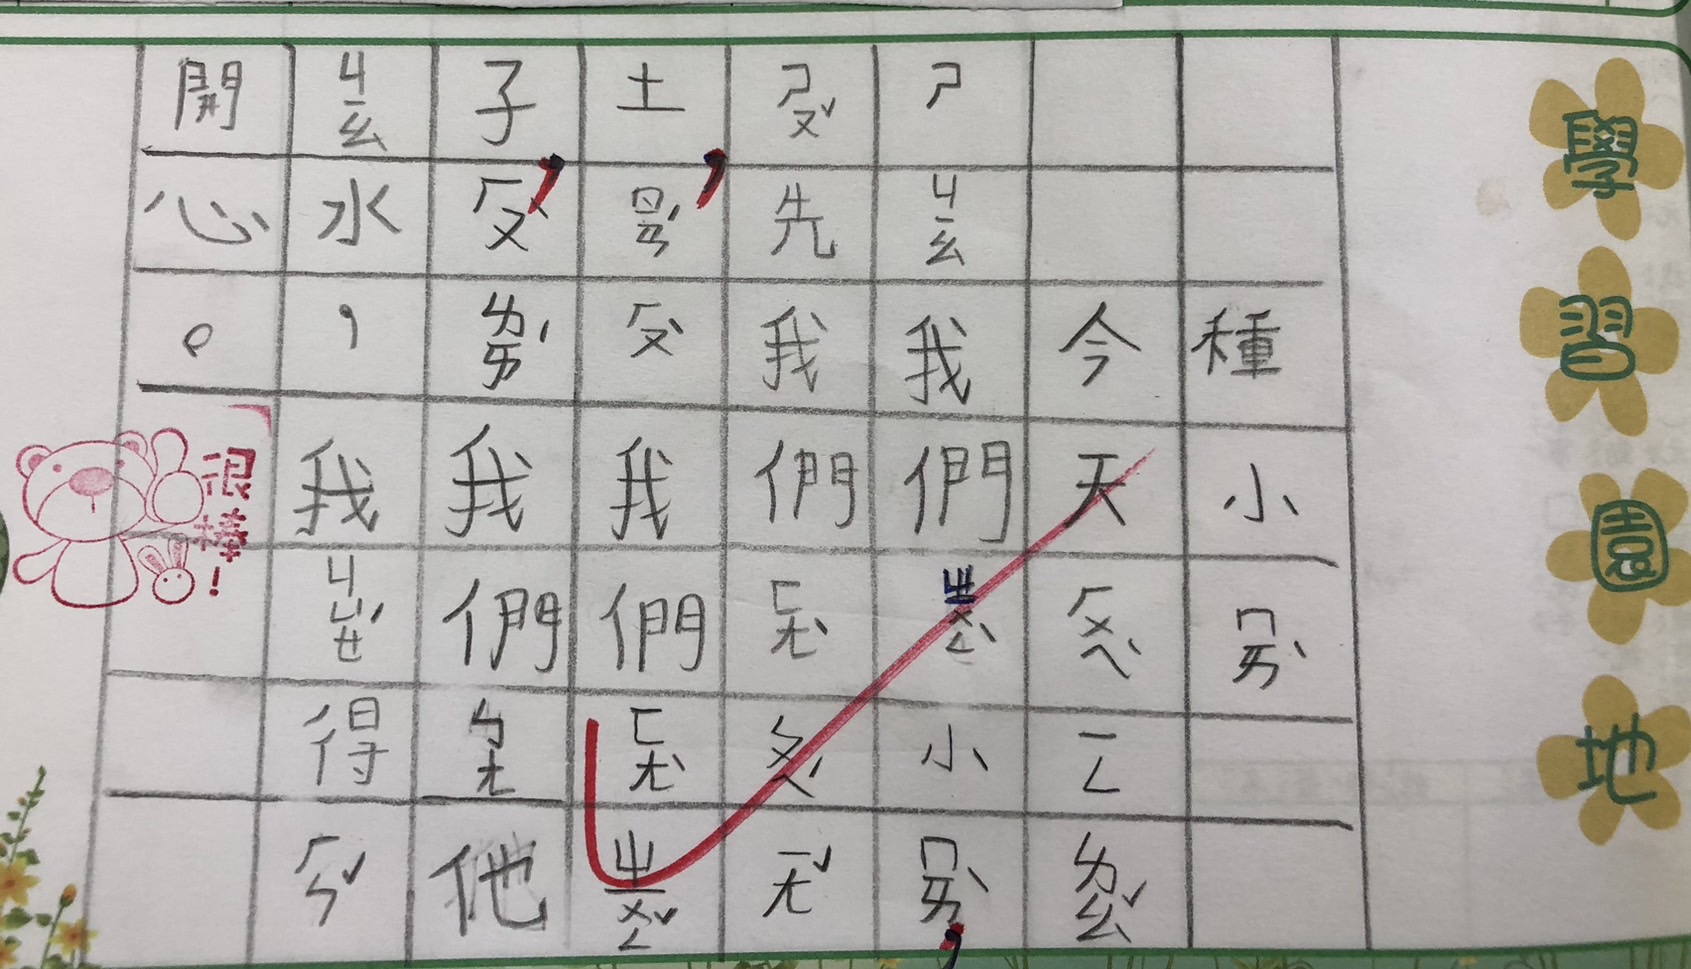 學習園地
種小ㄇㄞˋ
今天ㄏㄨㄟˋㄧㄥㄌㄠˇ
ㄕㄐㄧㄠ我們ㄓㄨㄥˋ小ㄇㄞˋ，
ㄕㄡˇ先我們ㄈㄤˋㄆㄟˊㄧㄤˇ
土，ㄖㄢˊㄏㄡˋ我們ㄈㄤˋㄓㄨㄥˇ
子，ㄏㄡˋㄌㄞˊ我們ㄅㄤ他
ㄐㄧㄠ水，我ㄐㄩㄝˊ得ㄏㄣˇ
開心。
很棒！